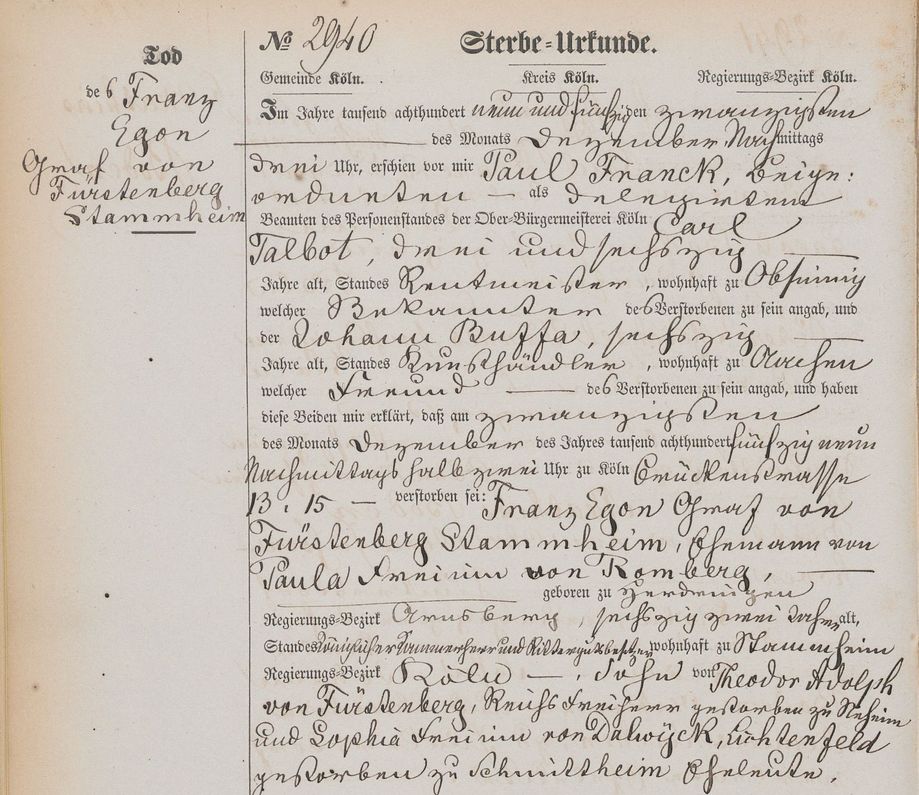 Tod
des Franz
Egon
Graf von
Fürstenberg
Stammheim
No 2940 Sterbe-Urkunde.
Gemeinde Köln. Kreis Köln. Regierungs-Bezirk Köln.
Im Jahre tausend achthundert neun und fünfzig den zwanzigsten
des Monats Dezember Nachmittags
drei Uhr, erschien vor mir Paul Franck, Beige:
ordneten — als delegirtem
Beamten des Personenstandes der Ober-Bürgermeisterei Köln Carl
Talbot, drei und sechszig
Jahre alt, Standes Rentmeister, wohnhaft zu
welcher Bekannter des Verstorbenen zu sein angab, und
der Johann Buffa, sechszig
Jahre alt, Standes Kunsthändler, wohnhaft zu Aachen
welcher Freund — des Verstorbenen zu sein angab, und haben
diese Beiden mir erklärt, daß am zwanzigsten
des Monats Dezember des Jahres tausend achthundert fünfzig neun
Nachmittags halb zwei Uhr zu Köln Brückenstrasse
13. 15 — verstorben sei: Franz Egon Graf von
Fürstenberg Stammheim, Ehemann von
Paula Freiinn von Romberg,
geboren zu Herdringen
Regierungs-Bezirk Arnsberg, sechszig zwei Jahre alt,
Standes Königlicher Kammerherr und Rittergutsbesitzer wohnhaft zu Stammheim
Regierungs-Bezirk Köln —, Sohn von Theodor Adolph
von Fürstenberg, Reichs Freiherr gestorben zu Neheim
und Sophia Freiinn von Dalwijck, Lichtenfeld
gestorben zu Schmittheim Eheleute.